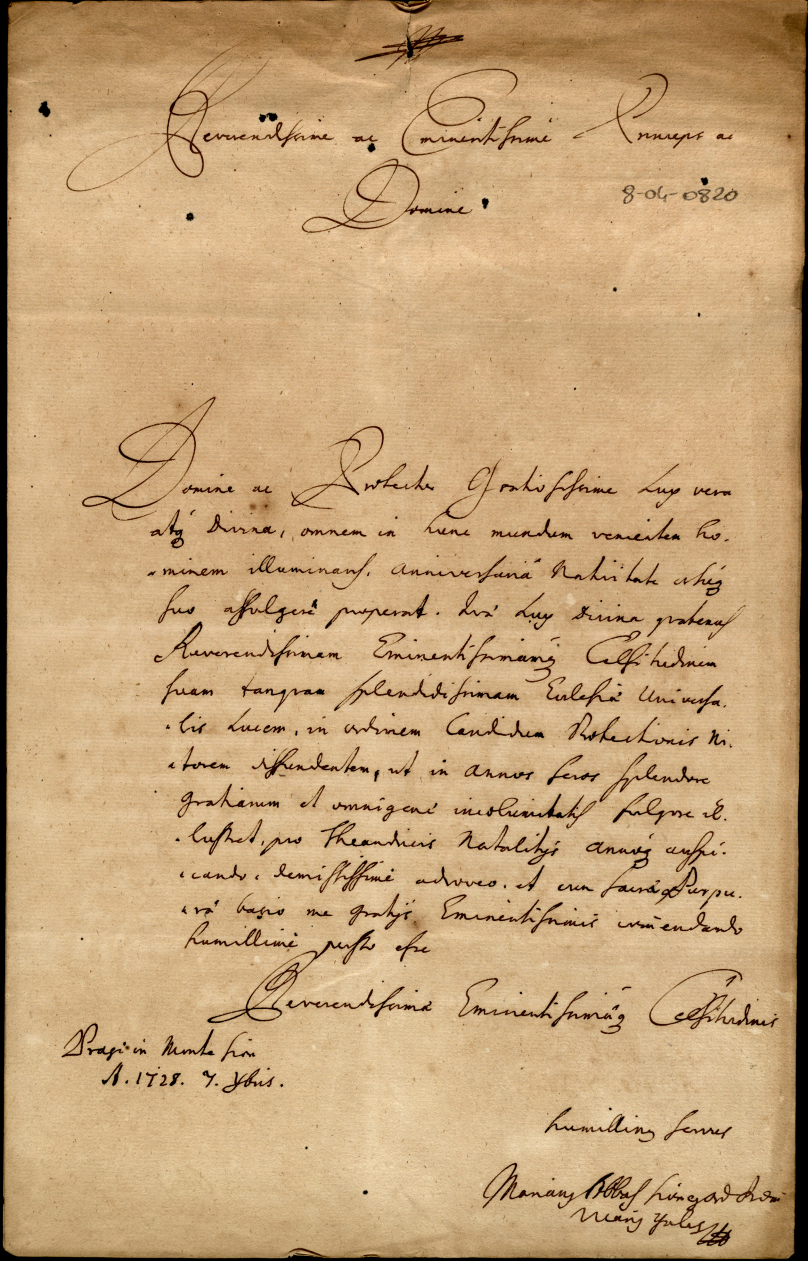 Reverendissime ac Eminentissime Princeps ac
Domine
8-04-0820
Domine ac Protector Gratiosissime Lux vera
atq; Divina, omnem in hunc mundum venientem ho-
-minem illuminans, anniversariâ Nativitate orbi
suo affulgere properat. Lux Divina quatenus
Reverendissimam Eminentissimamq; Celsitudinem
suam tanquam splendidissimam Ecclesiæ Universa-
-lis Lucem, in ordinem Candidum Protectionis Ni-
-torem diffundentem, ut in annos seros splendore
gratiarum et omnigenæ incolumitatis fulgore il-
-lustret, pro Theandricis Natalitijs annoq; auspi-
-cando, demississimè advoveo, et cum sacræ Purpu-
-ræ basio me gratijs Eminentissimis commendando
humillimè persto esse
Reverendissimæ Eminentissimæq; Celsitudinis
Pragæ in Monte Sion
A. 1728. 7. Xbris.
humillimus servus
Marianus Abbas Sion